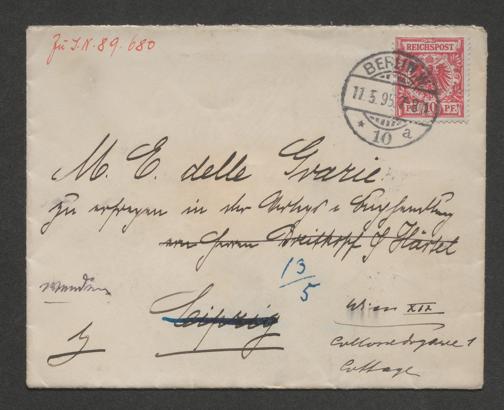 Zu I.N. 89.680
REICHSPOST
10 PF
BERLIN W
11.5.95
10 a
M. E. delle Grazie
zu erfragen in der Verlags u Buchhandlung
von Herren Breitkopf & Härtel
13/5
wenden
Leipzig
Wien XIX
Cottage